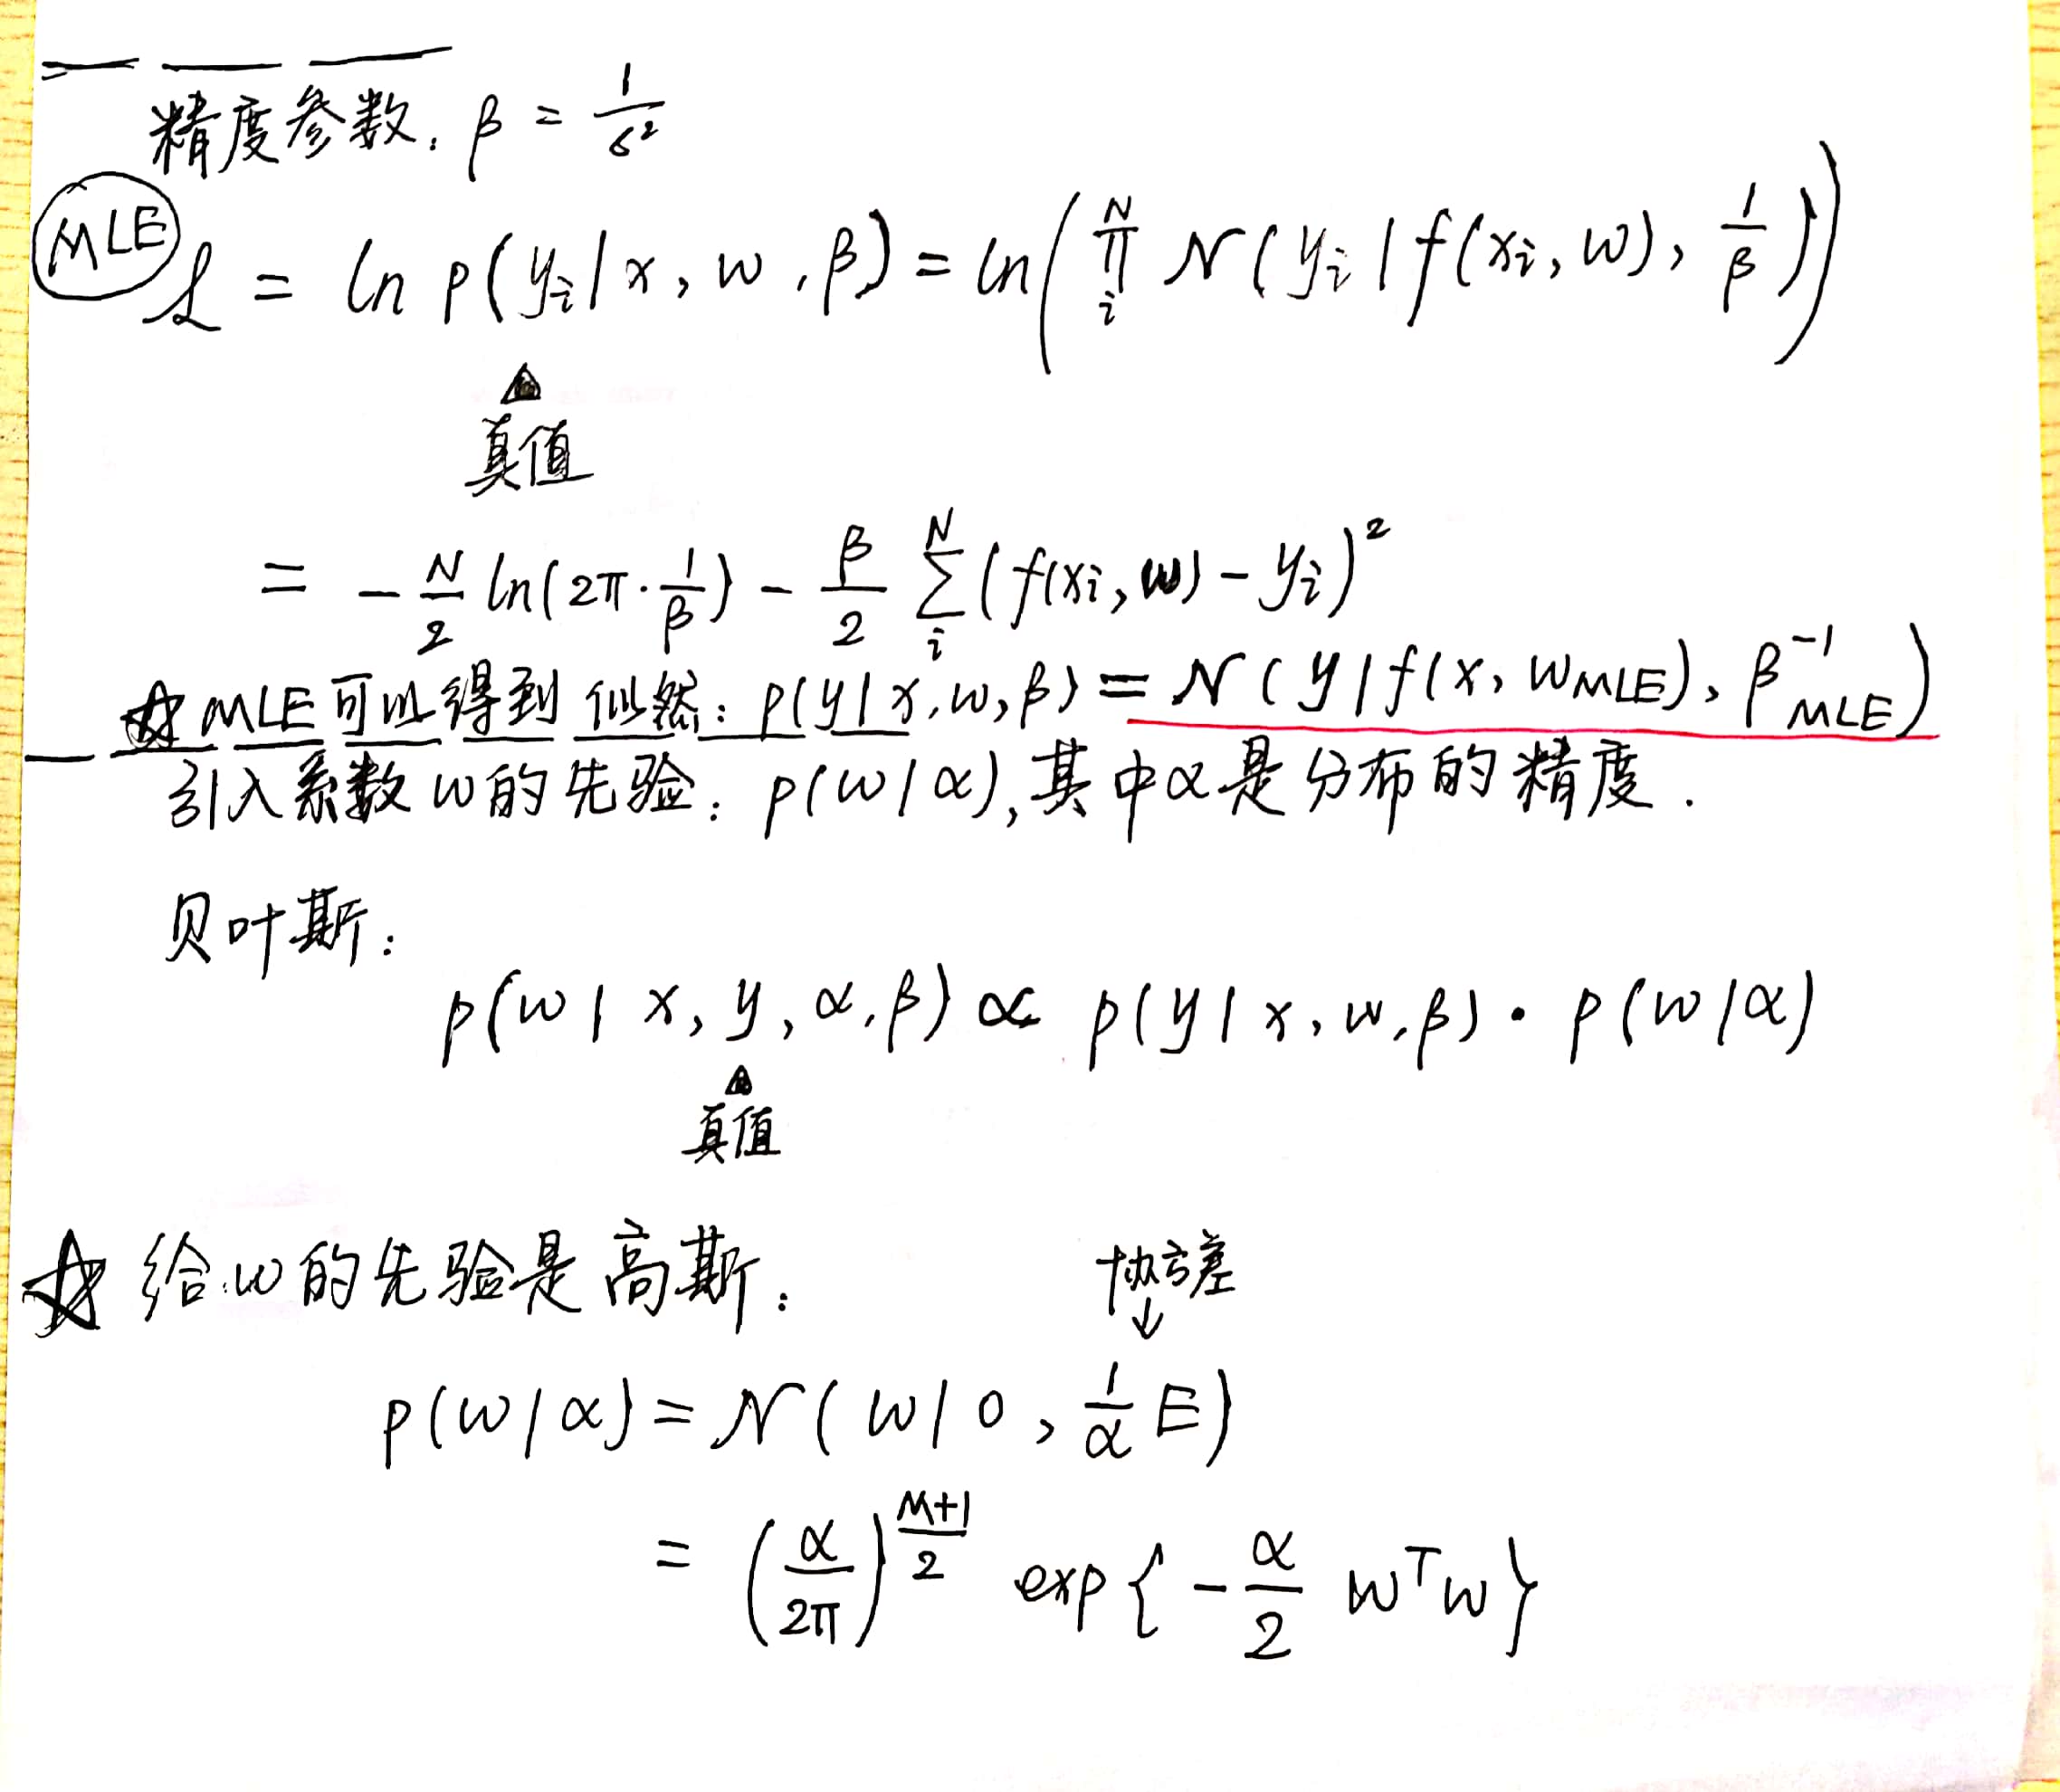 精度参数: β = 1/σ²
MLE
ℒ = ln p(yi|x, w, β) = ln(∏_i^N N(yi|f(xi, w), 1/β))
真值
= -N/2 ln(2π·1/β) - β/2 ∑_i^N (f(xi, w) - yi)²
☆ MLE可以得到 似然: p(y|x, w, β) = N(y|f(x, w_MLE), β⁻¹_MLE)
引入系数w的先验: p(w|α), 其中α是分布的精度.
贝叶斯:
p(w|x, y, α, β) ∝ p(y|x, w, β) · p(w|α)
真值
☆ 给w的先验是高斯:
协方差
↓
p(w|α) = N(w|0, 1/α E)
= (α/2π)^((M+1)/2) exp{-α/2 wᵀw}